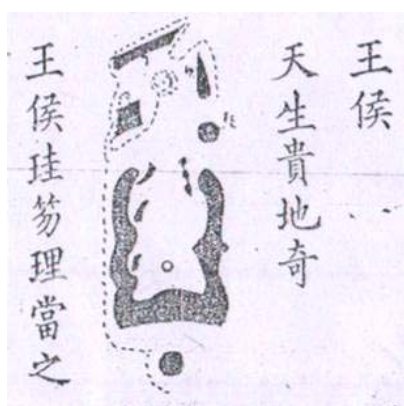 王侯
天生貴地奇
王侯珪笏理當之